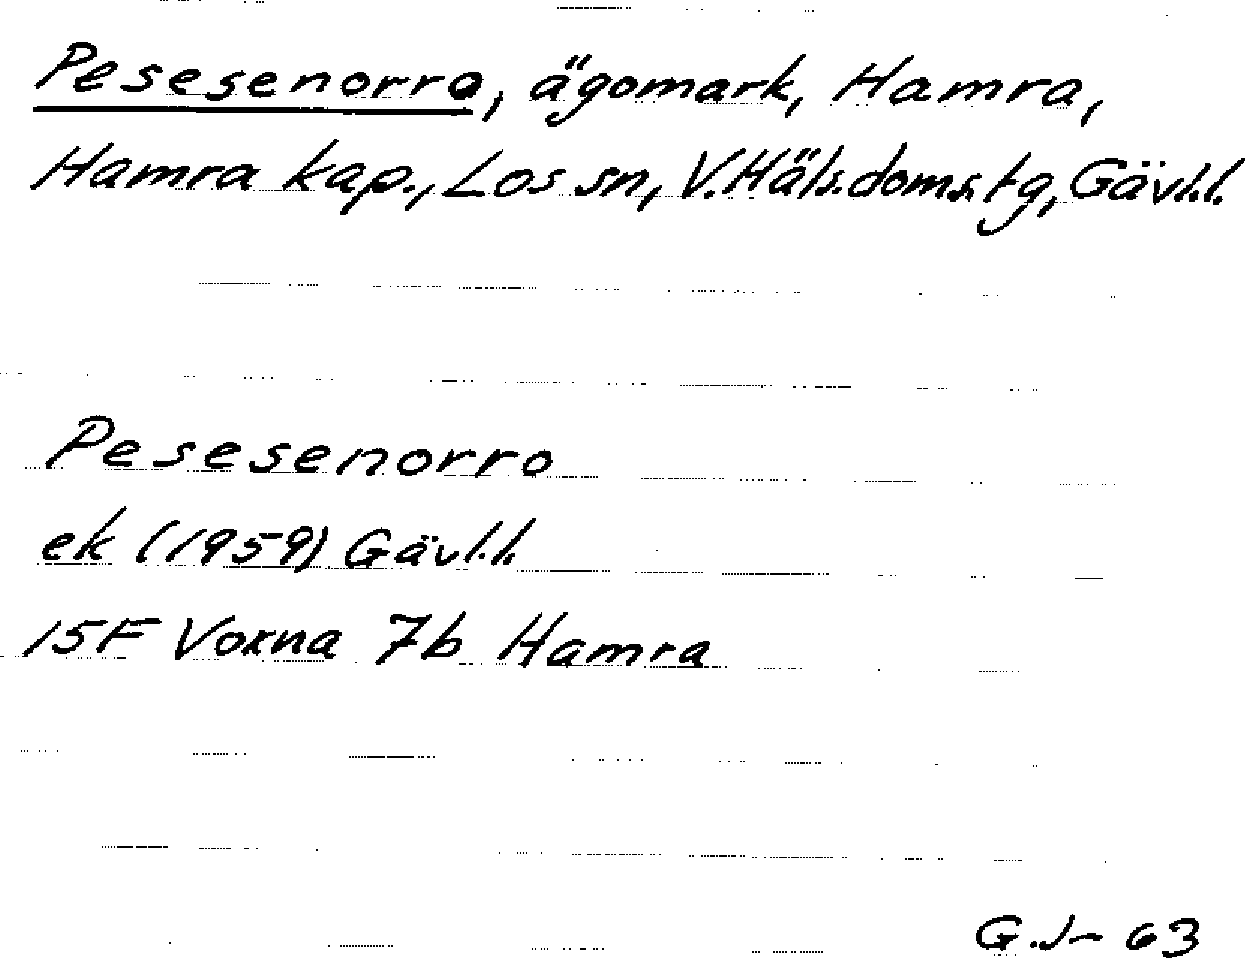 Pesesenorro, ägomark, Hamra,
Hamra kap., Los sn, V.Häls.doms.tg, Gävl.l.
Pesesenorro
ek (1959) Gävl.l.
15F Voxna 7b Hamra
G.J- 63